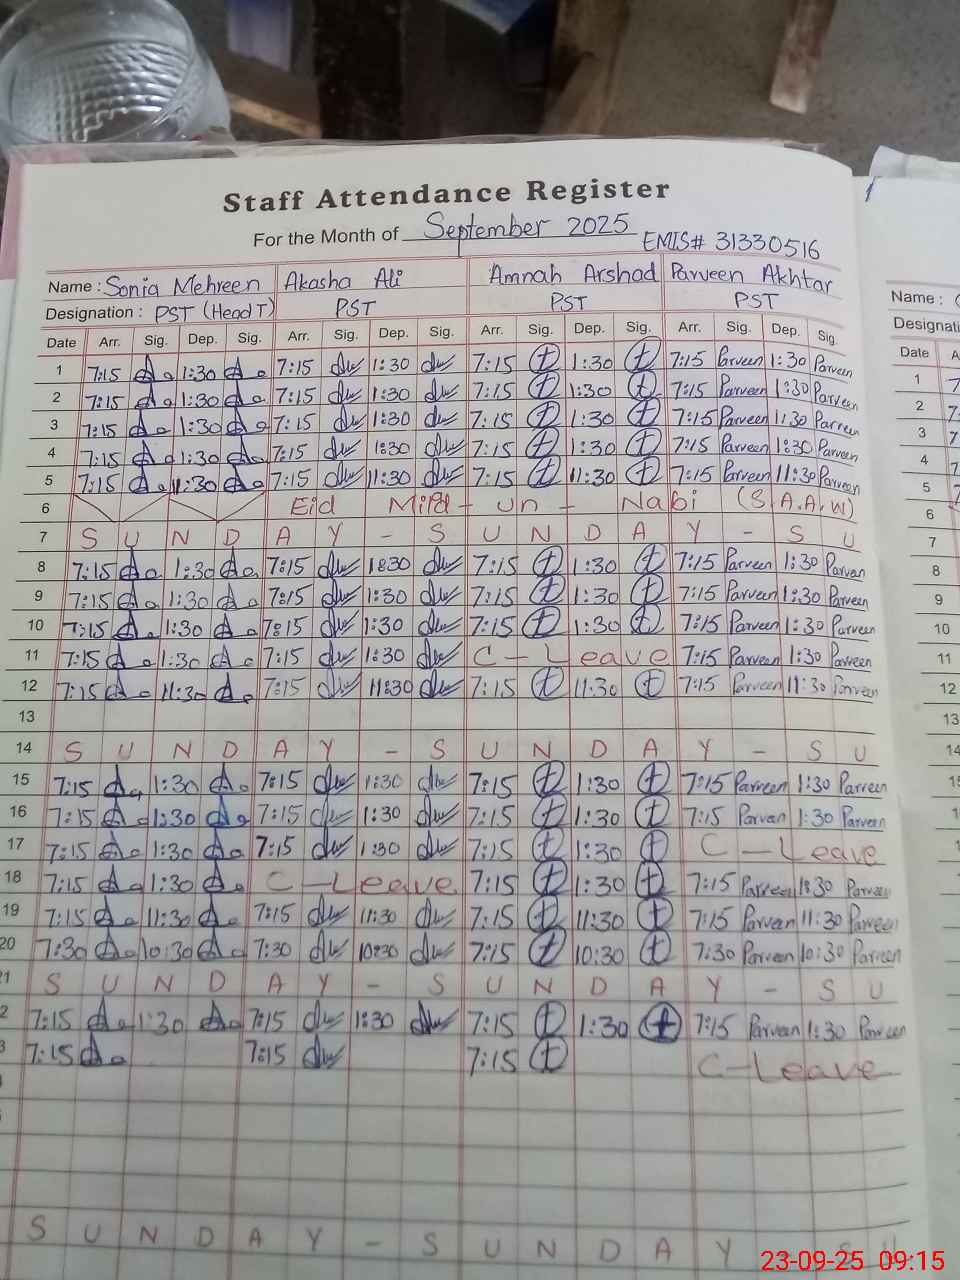 Staff Attendance Register
For the Month of September 2025 EMIS# 31330516
Name : Sonia Mehreen Akasha Ali Amnah Arshad Parveen Akhtar
Designation : PST (Head T) PST PST PST
Date Arr. Sig. Dep. Sig. Arr. Sig. Dep. Sig. Arr. Sig. Dep. Sig. Arr. Sig. Dep. Sig.
1 7:15 1:30 7:15 1:30 7:15 1:30 7:15 Parveen 1:30 Parveen
2 7:15 1:30 7:15 1:30 7:15 1:30 7:15 Parveen 1:30 Parveen
3 7:15 1:30 7:15 1:30 7:15 1:30 7:15 Parveen 1:30 Parveen
4 7:15 1:30 7:15 1:30 7:15 1:30 7:15 Parveen 1:30 Parveen
5 7:15 11:30 7:15 11:30 7:15 11:30 7:15 Parveen 11:30 Parveen
6 Eid Mild - un - Nabi (S.A.A.W)
7 S U N D A Y - S U N D A Y - S U
8 7:15 1:30 7:15 1:30 7:15 1:30 7:15 Parveen 1:30 Parveen
9 7:15 1:30 7:15 1:30 7:15 1:30 7:15 Parveen 1:30 Parveen
10 7:15 1:30 7:15 1:30 7:15 1:30 7:15 Parveen 1:30 Parveen
11 7:15 1:30 7:15 1:30 C - Leave 7:15 Parveen 1:30 Parveen
12 7:15 11:30 7:15 11:30 7:15 11:30 7:15 Parveen 11:30 Parveen
13
14 S U N D A Y - S U N D A Y - S U
15 7:15 1:30 7:15 1:30 7:15 1:30 7:15 Parveen 1:30 Parveen
16 7:15 1:30 7:15 1:30 7:15 1:30 7:15 Parveen 1:30 Parveen
17 7:15 1:30 7:15 1:30 7:15 1:30 C - Leave
18 7:15 1:30 C - Leave 7:15 1:30 7:15 Parveen 1:30 Parveen
19 7:15 11:30 7:15 11:30 7:15 11:30 7:15 Parveen 11:30 Parveen
20 7:30 10:30 7:30 10:30 7:15 10:30 7:30 Parveen 10:30 Parveen
21 S U N D A Y - S U N D A Y - S U
2 7:15 1:30 7:15 1:30 7:15 1:30 7:15 Parveen 1:30 Parveen
3 7:15 7:15 7:15 C - Leave
S U N D A Y - S U N D A Y - S U
Name :
Date
1
2
3
4
5
6
7
8
9
10
11
12
13
14
23-09-25 09:15